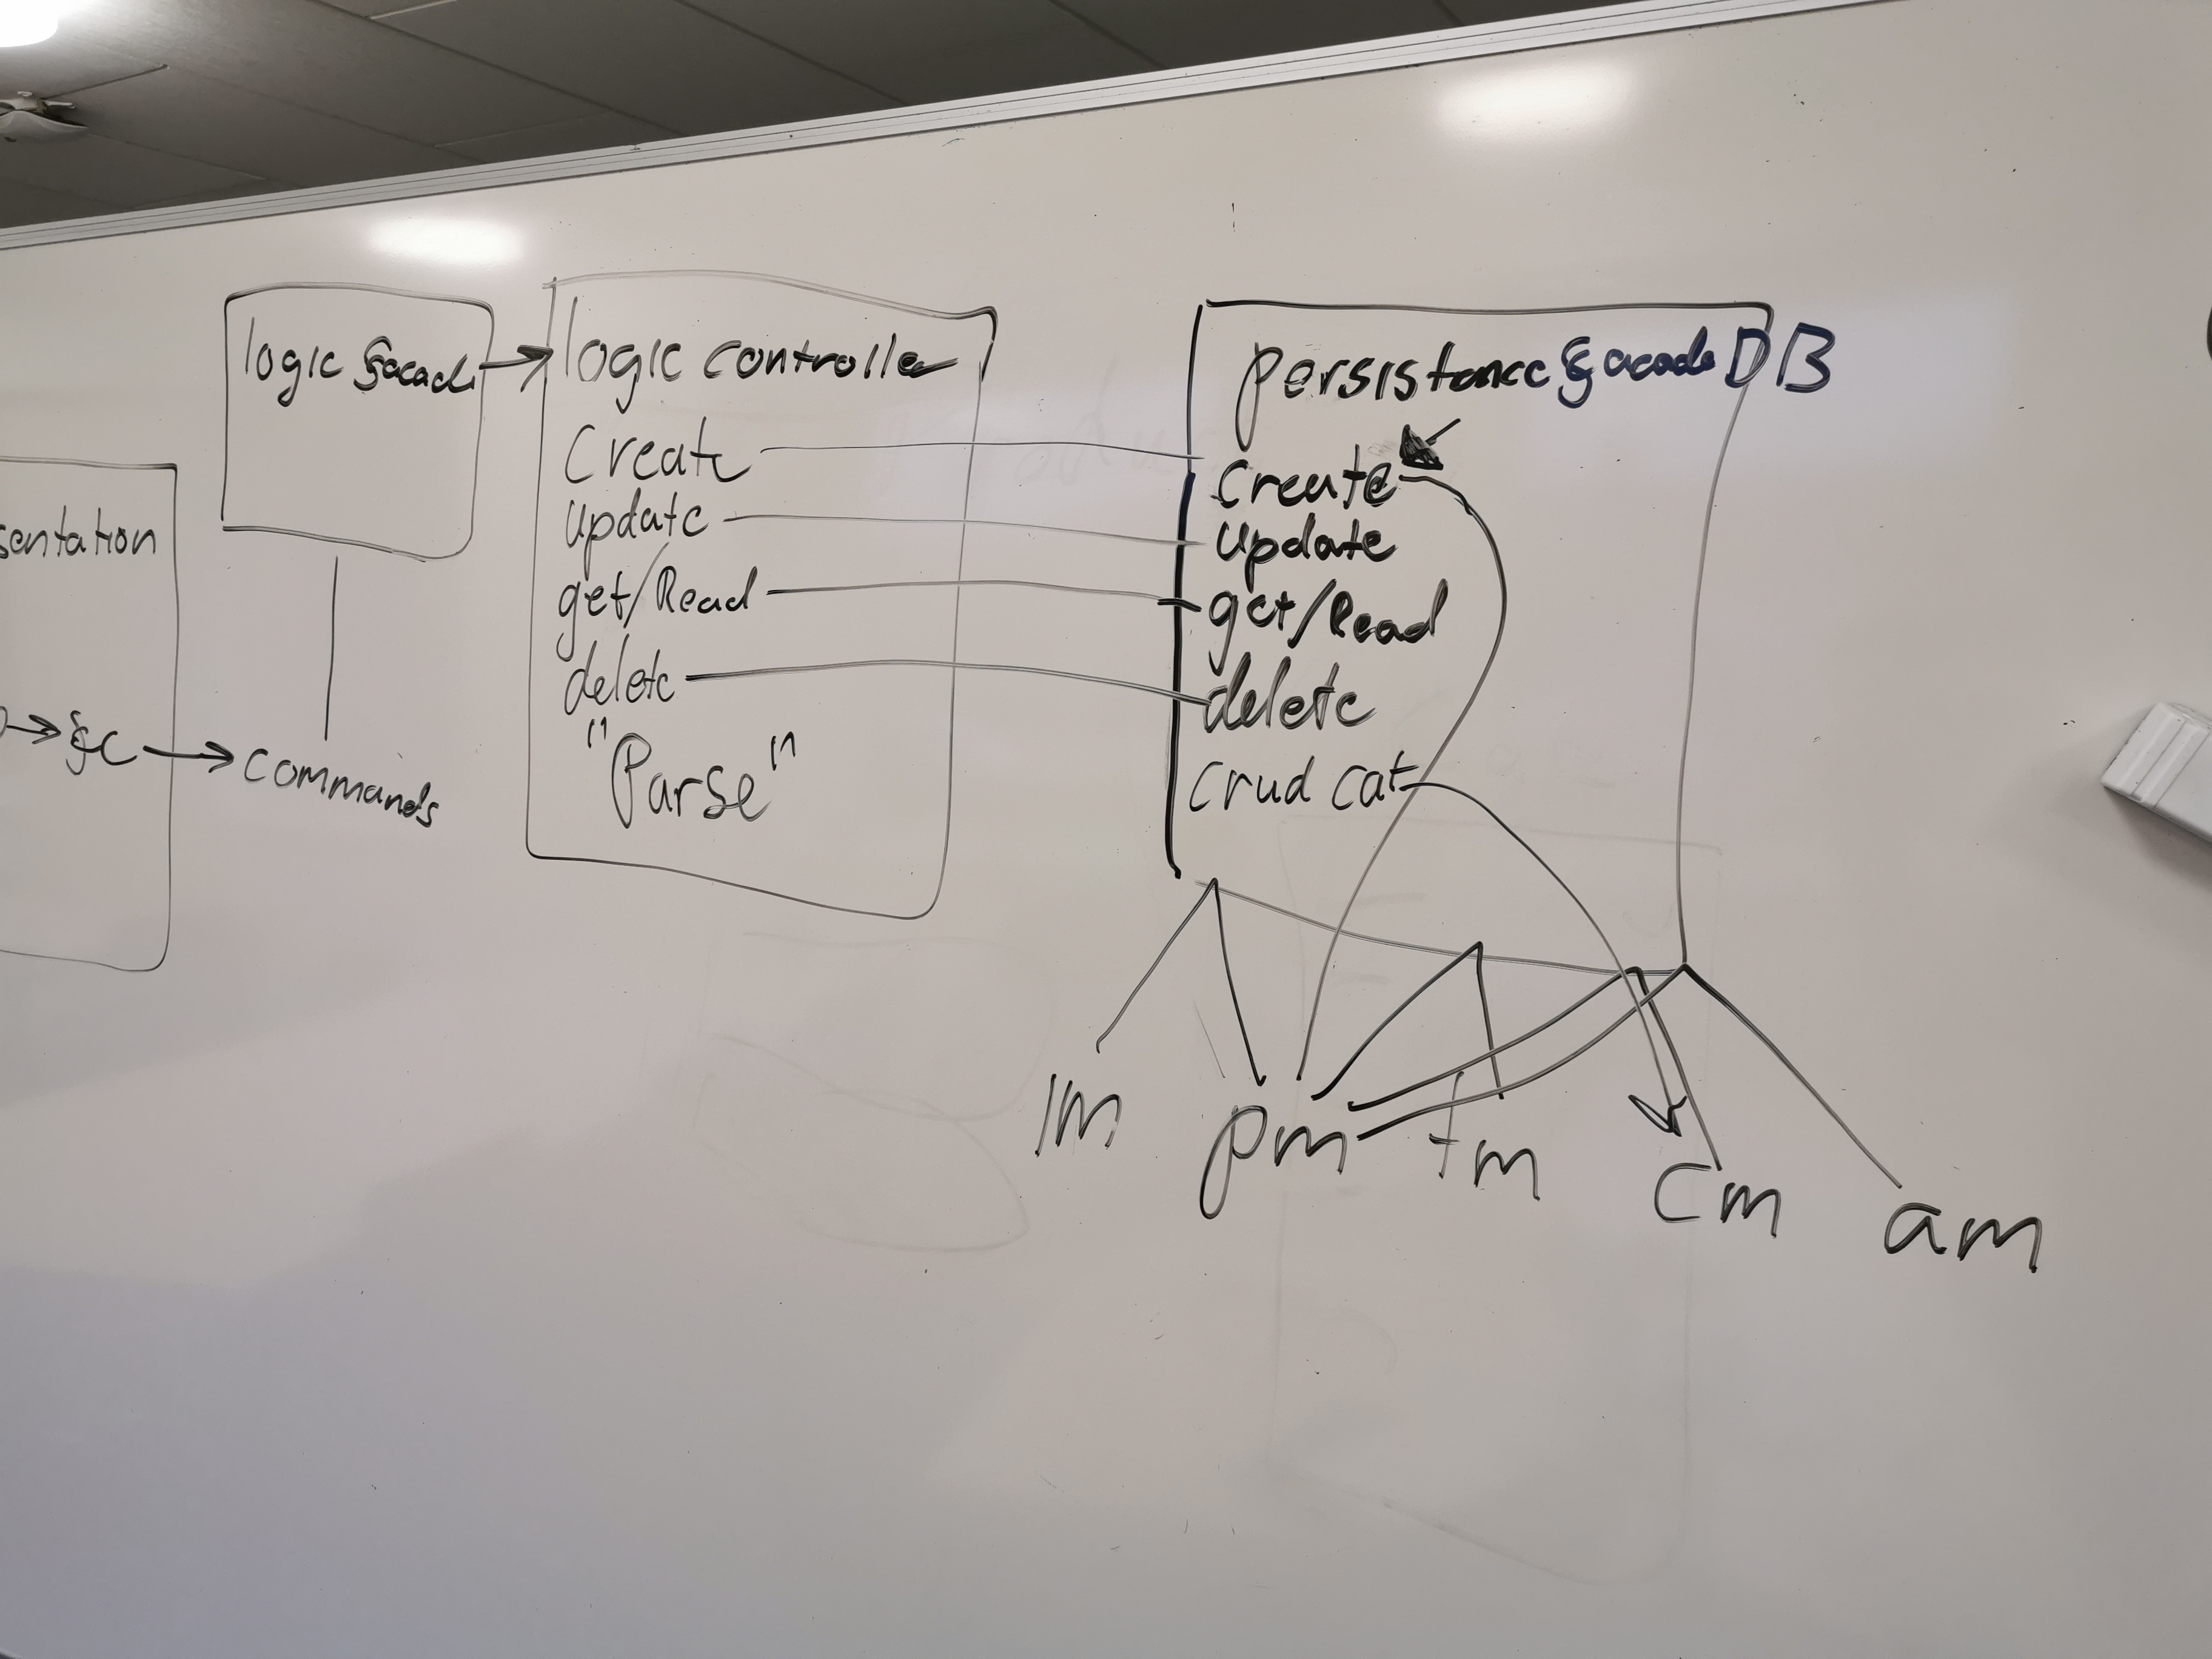 sentation
→ fc → commands
logic facade →
logic controller
Create
Update
get/Read
delete
"Parse"
persistance facade DB
Create
Update
get/Read
delete
crud cat
lm
pm
tm
cm
am